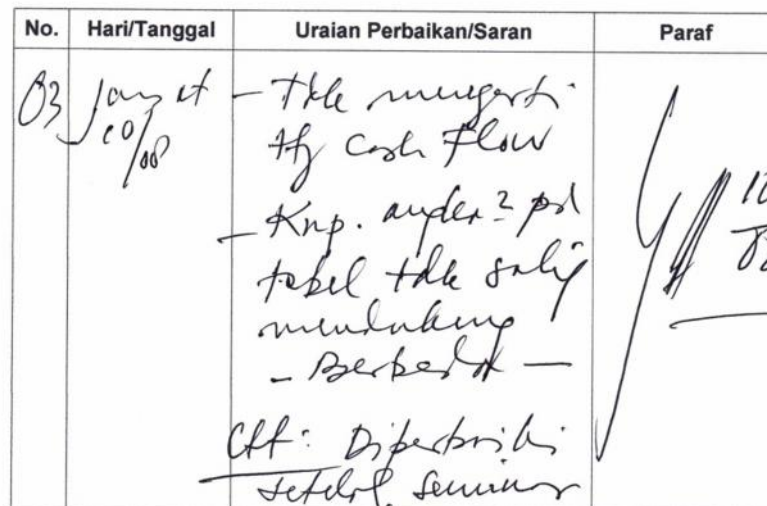 No. Hari/Tanggal Uraian Perbaikan/Saran Paraf
03 Jum'at - Tdk mengerti
10/08 ttg Cash Flow
- Knp. angka² pd
tabel tdk saling
mendukung
- Berbeda -
Ctt: Diperbaiki
setelah seminar
10